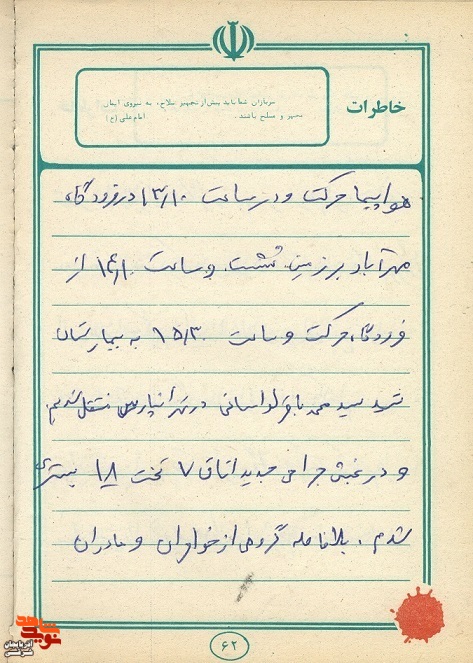 خاطرات
سربازان شما باید پیش از تجهیز سلاح، به نیروی ایمان
مجهز و مسلح باشند.
امام علی (ع)
هواپیما حرکت و در ساعت ۱۳/۱۰ در فرودگاه
مهرآباد بر زمین نشست. و ساعت ۱۴/۱۰ از
فرودگاه حرکت و ساعت ۱۵/۳۰ به بیمارستان
شهید سید محمد باقر لواسانی در تهرانپارس منتقل شدیم.
و در بخش جراحی جدید اتاق ۷ تخت ۱۸ بستری
شدم. بلافاصله گروهی از خواهران و مادران
نوید شاهد
آذربایجان شرقی
۶۲